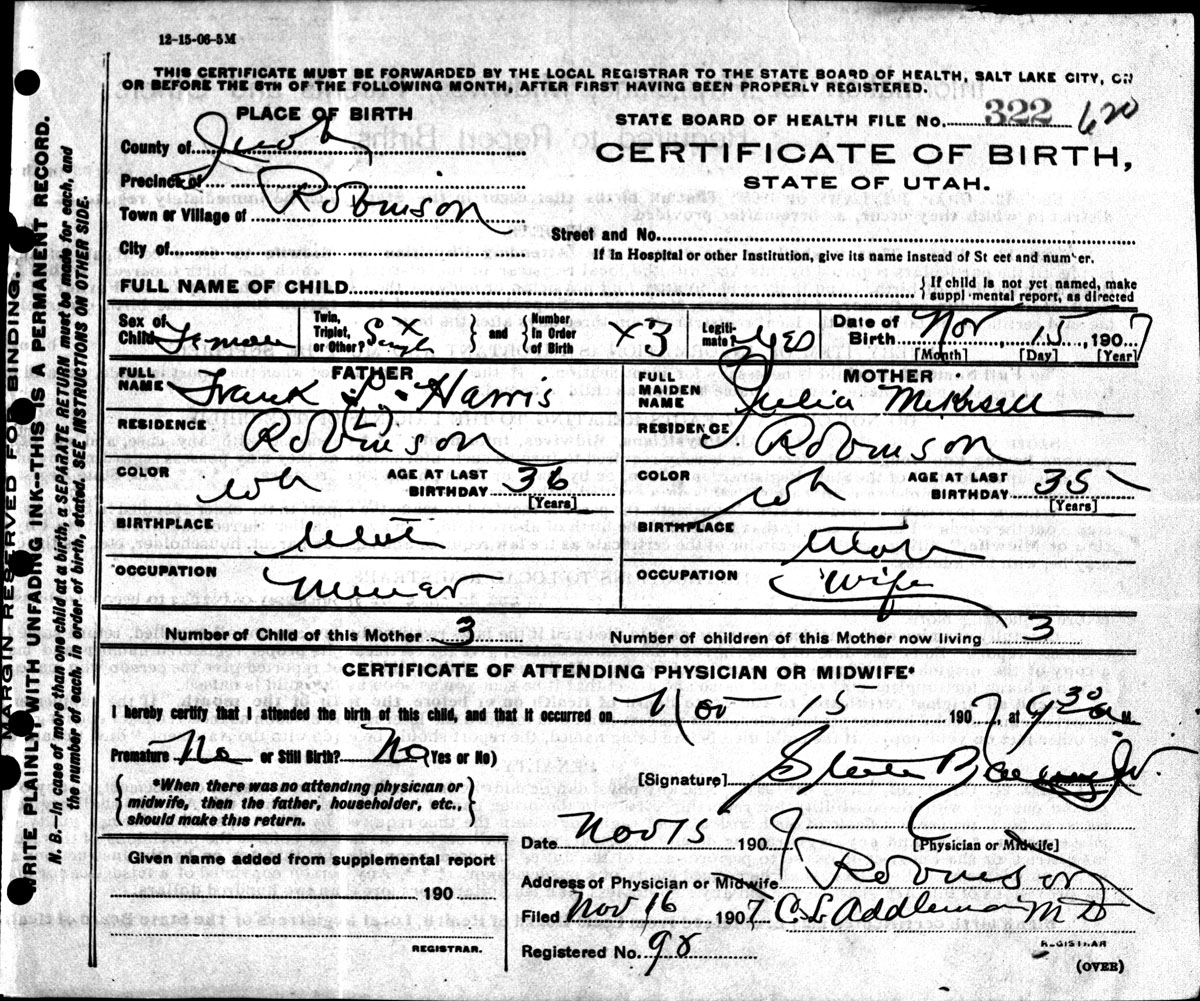 12-15-06-5M
THIS CERTIFICATE MUST BE FORWARDED BY THE LOCAL REGISTRAR TO THE STATE BOARD OF HEALTH, SALT LAKE CITY, ON
OR BEFORE THE 5TH OF THE FOLLOWING MONTH, AFTER FIRST HAVING BEEN PROPERLY REGISTERED.
PLACE OF BIRTH
STATE BOARD OF HEALTH FILE No. 322 620
County of Juab
CERTIFICATE OF BIRTH,
STATE OF UTAH.
Precinct of
Town or Village of Robinson
Street and No.
City of
If in Hospital or other Institution, give its name instead of St eet and num er.
FULL NAME OF CHILD
If child is not yet named, make
suppl mental report, as directed
Sex of Child Female
Twin, Triplet, or Other? Single X
and
Number in Order of Birth X3
Legiti- mate? Yes
Date of Birth Nov 15, 1907
[Month] [Day] [Year]
FATHER
FULL NAME Frank L. Harris
(L)
RESIDENCE Robinson
COLOR Wh AGE AT LAST BIRTHDAY 36
[Years]
BIRTHPLACE Utah
OCCUPATION Miner
MOTHER
FULL MAIDEN NAME Julia
RESIDENCE Robinson
COLOR Wh AGE AT LAST BIRTHDAY 35
[Years]
BIRTHPLACE Utah
OCCUPATION Wife
Number of Child of this Mother 3 Number of children of this Mother now living 3
CERTIFICATE OF ATTENDING PHYSICIAN OR MIDWIFE*
I hereby certify that I attended the birth of this child, and that it occurred on Nov 15 1907 at 9 30 a M.
Premature No or Still Birth? No (Yes or No)
[Signature] Steele Jr.
*When there was no attending physician or
midwife, then the father, householder, etc.,
should make this return.
Date Nov 15 1907 [Physician or Midwife]
Given name added from supplemental report
190
Address of Physician or Midwife Robinson
Filed Nov 16 1907 C. L. Addleman M D
REGISTRAR.
Registered No. 98
REGISTRAR
(OVER)
MARGIN RESERVED FOR BINDING.
WRITE PLAINLY, WITH UNFADING INK--THIS IS A PERMANENT RECORD.
N. B.--In case of more than one child at a birth, a SEPARATE RETURN must be made for each, and
the number of each, in order of birth, stated. SEE INSTRUCTIONS ON OTHER SIDE.